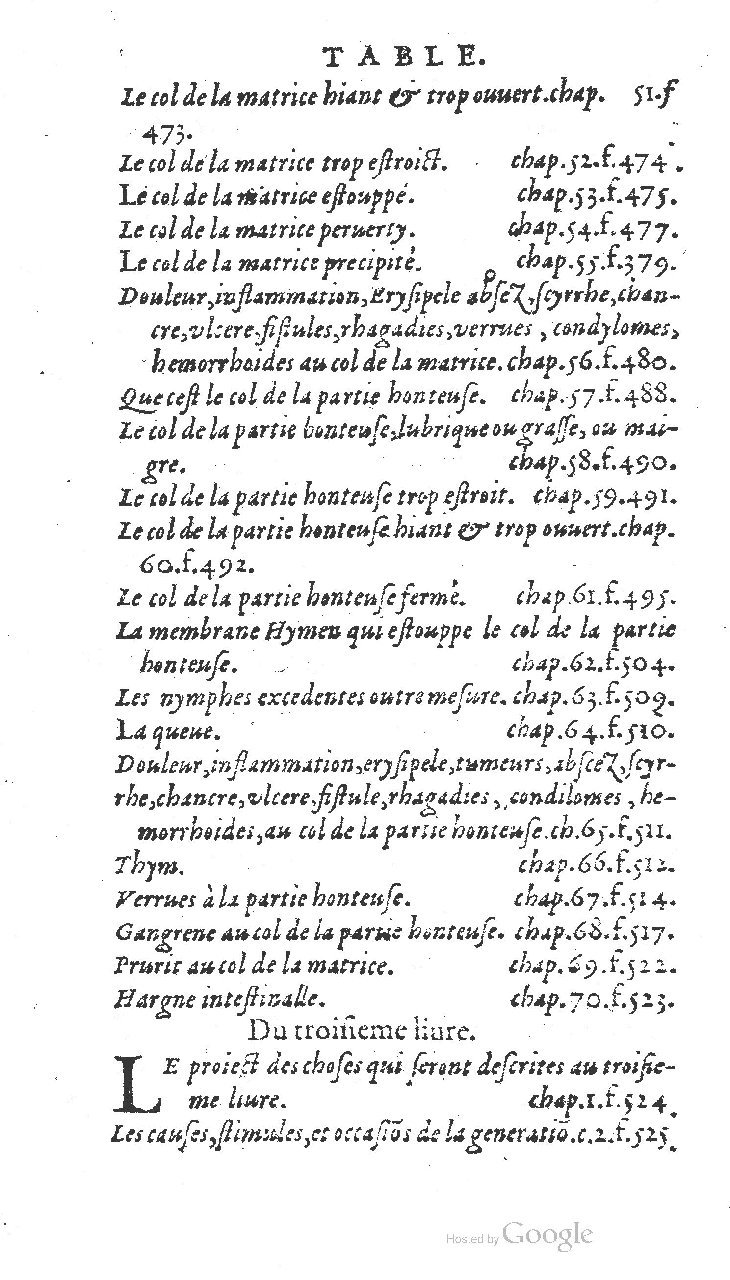 TABLE.
Le col de la matrice hiant & trop ouuert.chap. 51.f
473.
Le col de la matrice trop eſtroict. chap.52.f.474.
Le col de la matrice eſtouppé. chap.53.f.475.
Le col de la matrice peruerty. chap.54.f.477.
Le col de la matrice precipité. chap.55.f.379.
Douleur,inflammation,Eryſipele abſcez,ſcyrrhe,chan-
cre,vlcere,fiſtules,rhagadies,verrues , condylomes,
hemorrhoides au col de la matrice.chap.56.f.480.
Que ceſt le col de la partie honteuſe. chap.57.f.488.
Le col de la partie honteuſe,lubrique ou graſſe, ou mai-
gre. chap.58.f.490.
Le col de la partie honteuſe trop eſtroit. chap.59.491.
Le col de la partie honteuſe hiant & trop ouuert.chap.
60.f.492.
Le col de la partie honteuſe fermé. chap.61.f.495.
La membrane Hymen qui eſtouppe le col de la partie
honteuſe. chap.62.f.504.
Les nymphes excedentes outre meſure. chap.63.f.509.
La queue. chap.64.f.510.
Douleur,inflammation,eryſipele,tumeurs,abſcez,ſcyr-
rhe,chancre,vlcere,fiſtule,rhagadies, condilomes , he-
morrhoides,au col de la partie honteuſe.ch.65.f.511.
Thym. chap.66.f.512.
Verrues à la partie honteuſe. chap.67.f.514.
Gangrene au col de la partie honteuſe. chap.68.f.517.
Prurit au col de la matrice. chap.69.f.522.
Hargne inteſtinalle. chap.70.f.523.
Du troiſieme liure.
LE proiect des choſes qui ſeront deſcrites au troiſie-
me liure. chap.1.f.524.
Les cauſes,ſtimules,et occaſiõs de la generatiõ.c.2.f.525.
Hosted by Google